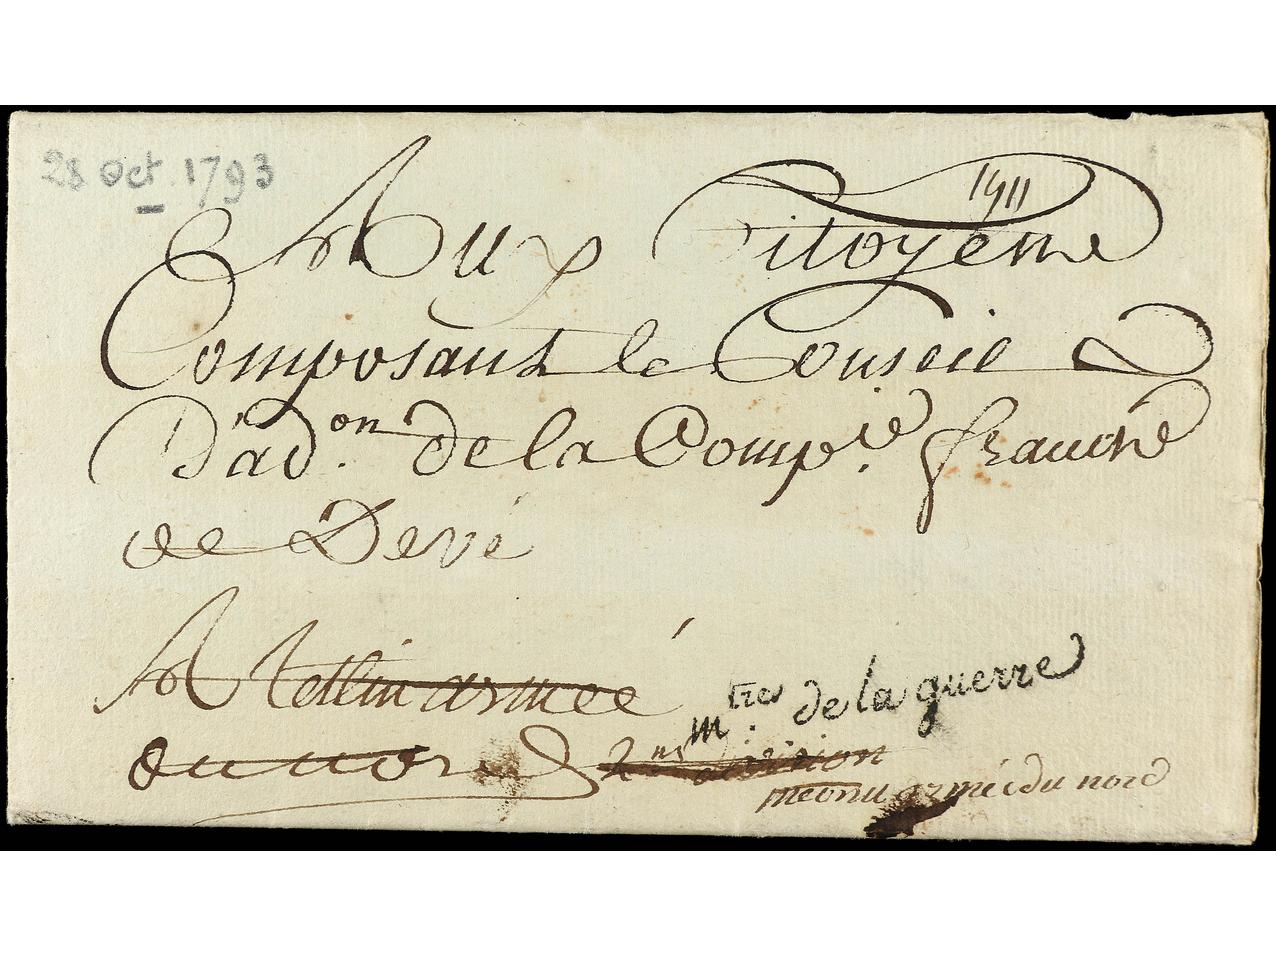 28 Oct. 1793
Aux Citoyens
Composant le Conseil
D'ad.on de la Comp.ie franche
de Devé
A armée
du nord 2.me division
m.tres de la guerre
armée du nord